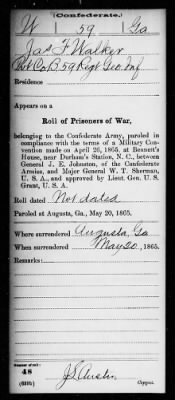 (Confederate.)
W 59 Ga
Jas F Walker
Pvt Co B, 59 Regt Geo Inf
Residence
Appears on a
Roll of Prisoners of War,
belonging to the Confederate Army, paroled in
compliance with the terms of a Military Con-
vention made on April 26, 1865, at Bennett's
House, near Durham's Station, N. C., between
General J. E. Johnston, of the Confederate
Armies, and Major General W. T. Sherman,
U. S. A., and approved by Lieut. Gen. U. S.
Grant, U. S. A.
Roll dated Not dated
Paroled at Augusta, Ga., May 20, 1865.
Where surrendered Augusta, Ga
When surrendered May 20, 1865.
Remarks:
Number of roll:
48
J.S. Austin
Copyist.